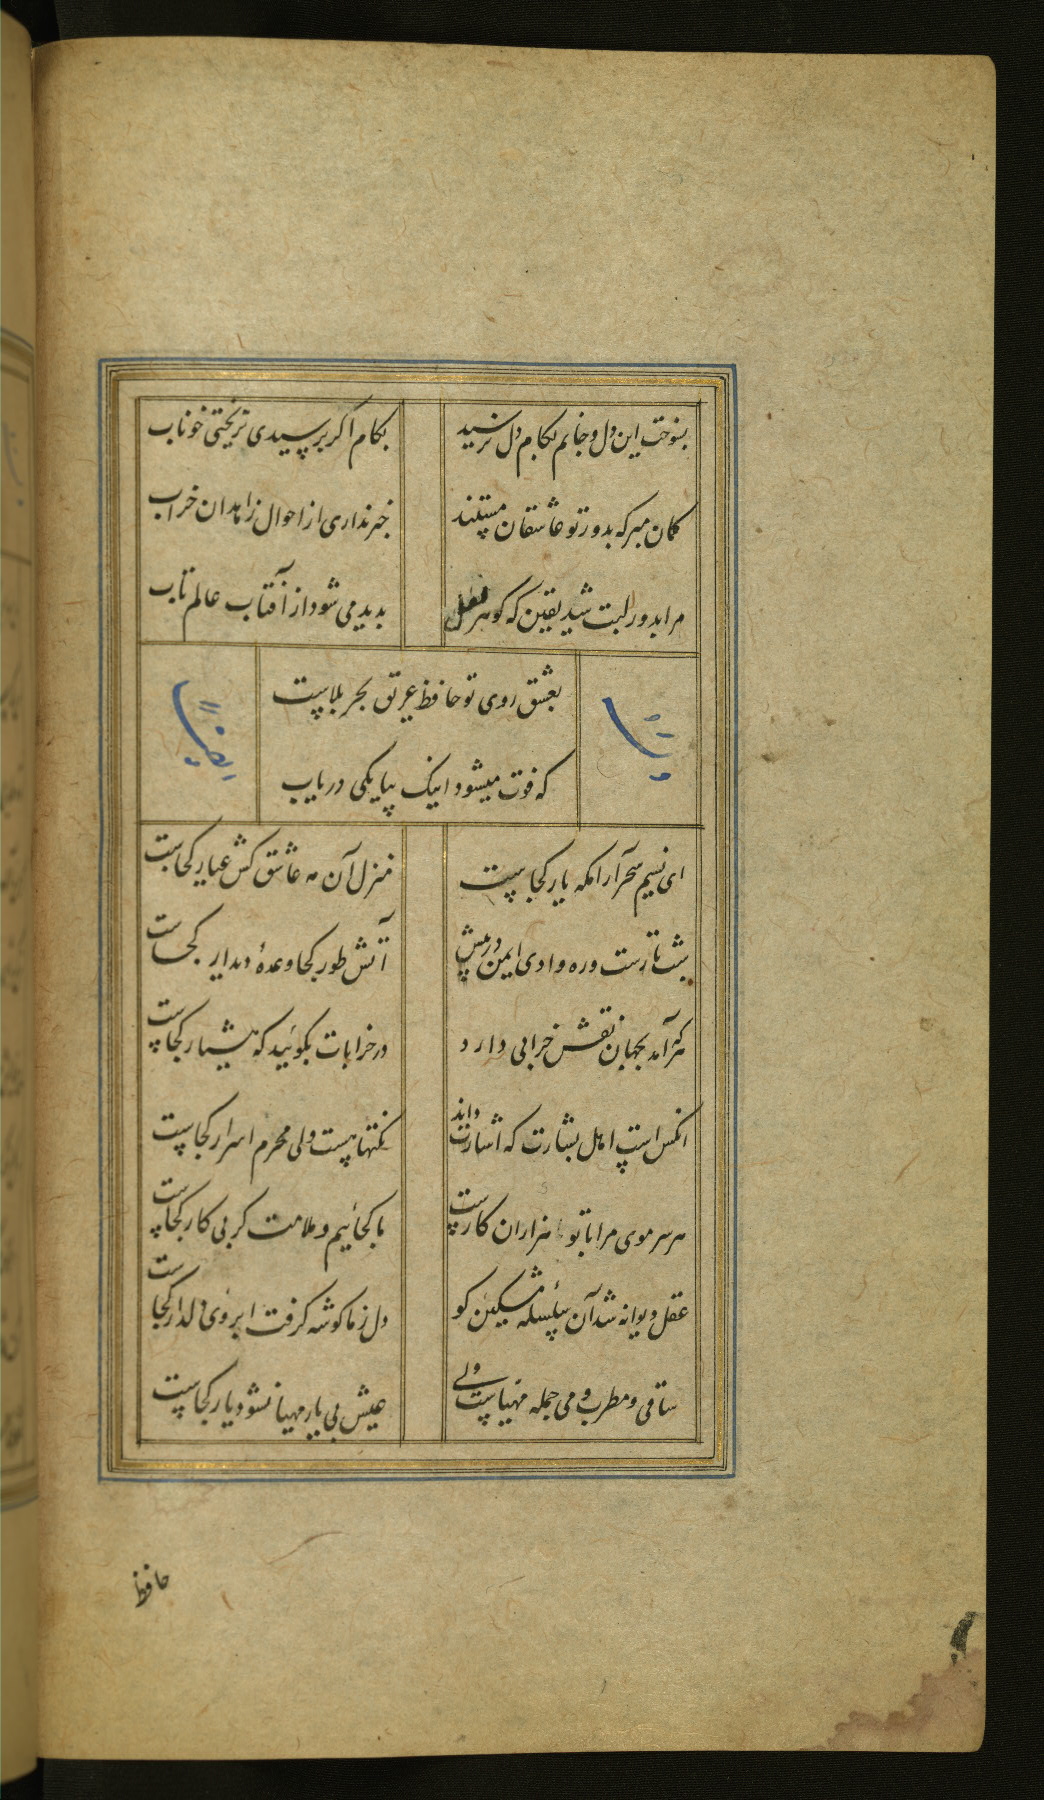 بسوخت این دل و جانم بکام دل نرسید
بکام اگر برسیدی نریختی خوناب
کمان مبر که بدور تو عاشقان مستند
خبر نداری از احوال زاهدان خراب
مرا بدور لبت شد یقین که کوهر لعل
بدید می شود از آفتاب عالم تاب
بعشق روی تو حافظ غریق بحر بلاست
که فوت میشود اینک بیا یکی دریاب
ای نسیم سحر آرامکه یار کجاست
منزل آن مه عاشق کش عیار کجاست
شب تارست و ره وادی ایمن در پیش
آتش طور کجا وعدهٔ دیدار کجاست
هر که آمد بجهان نقش خرابی دارد
در خرابات بکوئید که هشیار کجاست
انکس است اهل بشارت که اشارت داند
نکتها هست ولی محرم اسرار کجاست
هر سر موی مرا با تو هزاران کارست
ما کجائیم و ملامت کر بی کار کجاست
عقل دیوانه شد آن سلسلهٔ مشکین کو
دل ز ما کوشه کرفت ابروی دلدار کجاست
ساقی و مطرب و می جمله مهیاست ولی
عیش بی یار مهیا نشود یار کجاست
حافظ